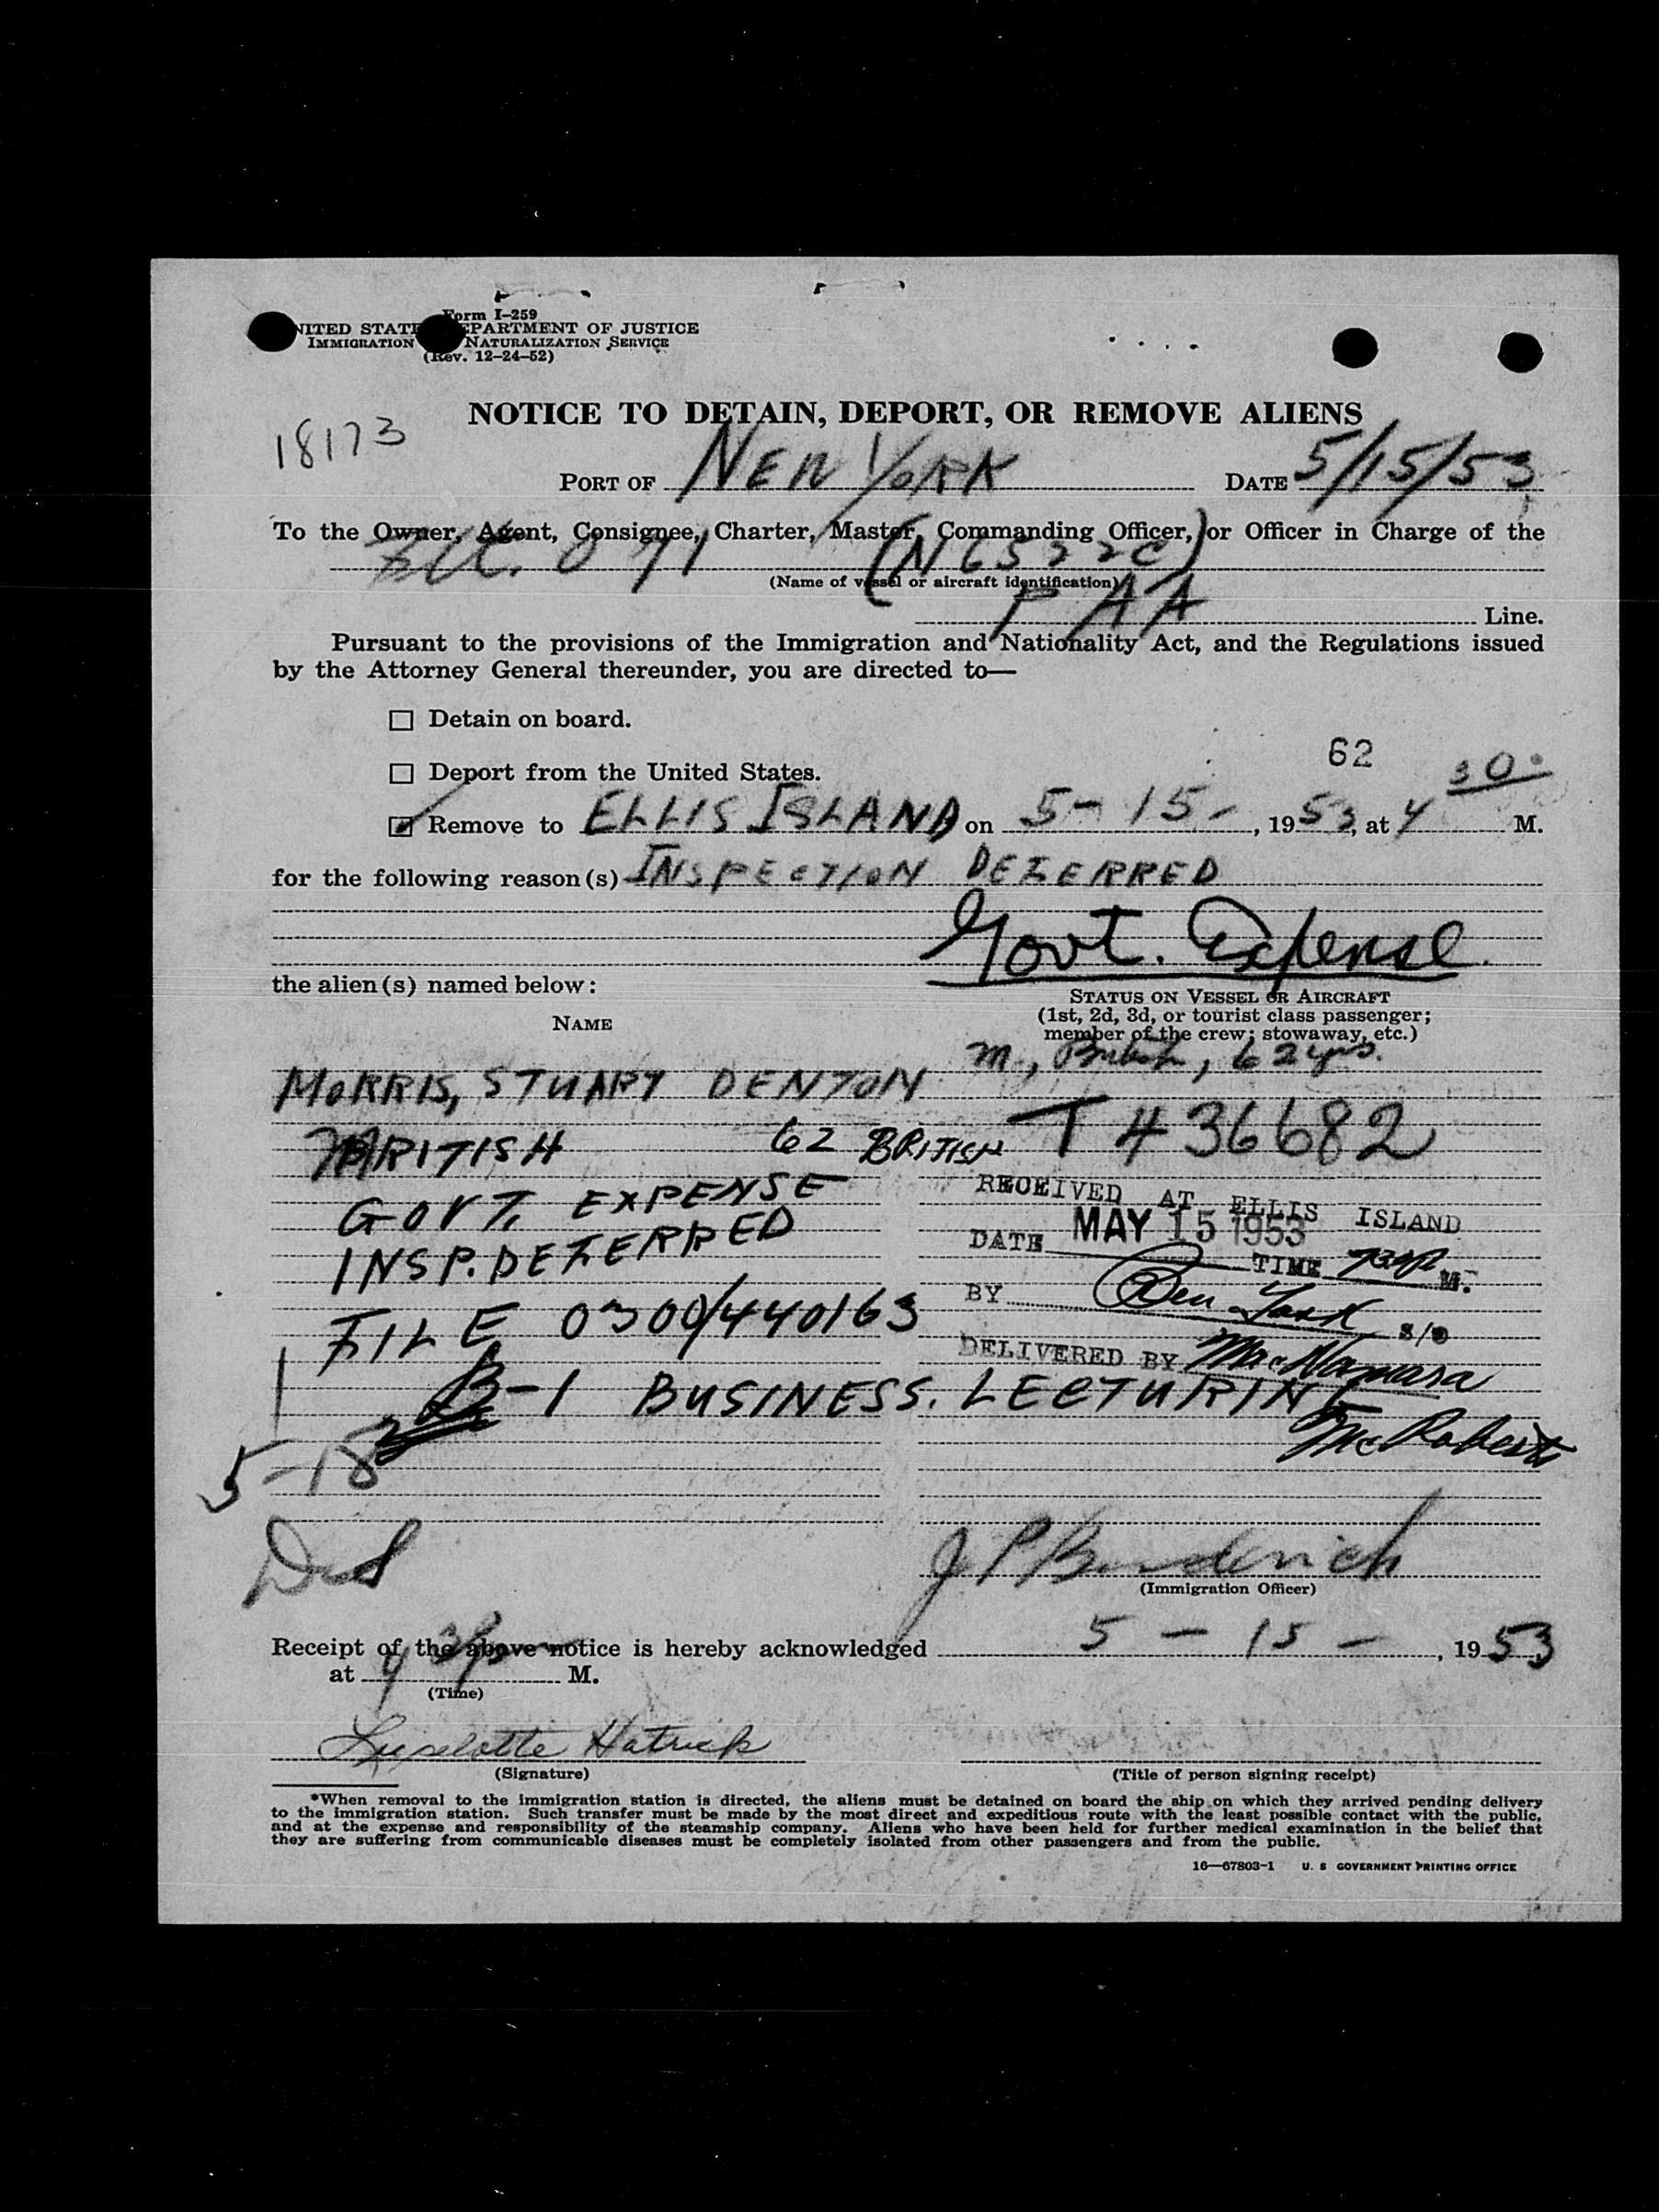 Form I-259
UNITED STATES DEPARTMENT OF JUSTICE
IMMIGRATION NATURALIZATION SERVICE
(Rev. 12-24-52)
NOTICE TO DETAIN, DEPORT, OR REMOVE ALIENS
18173
PORT OF NEW YORK DATE 5/15/53
To the Owner, Agent, Consignee, Charter, Master, Commanding Officer, or Officer in Charge of the
Flt. 071 (N6522C)
(Name of vessel or aircraft identification)
PAA Line.
Pursuant to the provisions of the Immigration and Nationality Act, and the Regulations issued
by the Attorney General thereunder, you are directed to—
Detain on board.
62
Deport from the United States.
Remove to ELLIS ISLAND on 5-15-, 1953, at 4 30 M.
for the following reason(s) INSPECTION DEFERRED
Govt. Expense.
the alien(s) named below:
NAME
STATUS ON VESSEL OR AIRCRAFT
(1st, 2d, 3d, or tourist class passenger;
member of the crew; stowaway, etc.)
m, British, 62 yrs.
MORRIS, STUART DENTON
BRITISH 62 BRITISH T436682
GOVT. EXPENSE
INSP. DEFERRED
RECEIVED AT ELLIS ISLAND
DATE MAY 15 1953 TIME M.
BY Ben S/O
FILE 0300/440163
DELIVERED BY MacNamara
B-1 BUSINESS. LECTURING
McRoberts
5-18
J P
(Immigration Officer)
Receipt of the above notice is hereby acknowledged 5-15-, 1953
at 4 M.
(Time)
Liselotte Hatrick
(Signature)
(Title of person signing receipt)
*When removal to the immigration station is directed, the aliens must be detained on board the ship on which they arrived pending delivery
to the immigration station. Such transfer must be made by the most direct and expeditious route with the least possible contact with the public,
and at the expense and responsibility of the steamship company. Aliens who have been held for further medical examination in the belief that
they are suffering from communicable diseases must be completely isolated from other passengers and from the public.
16—67803-1 U. S GOVERNMENT PRINTING OFFICE